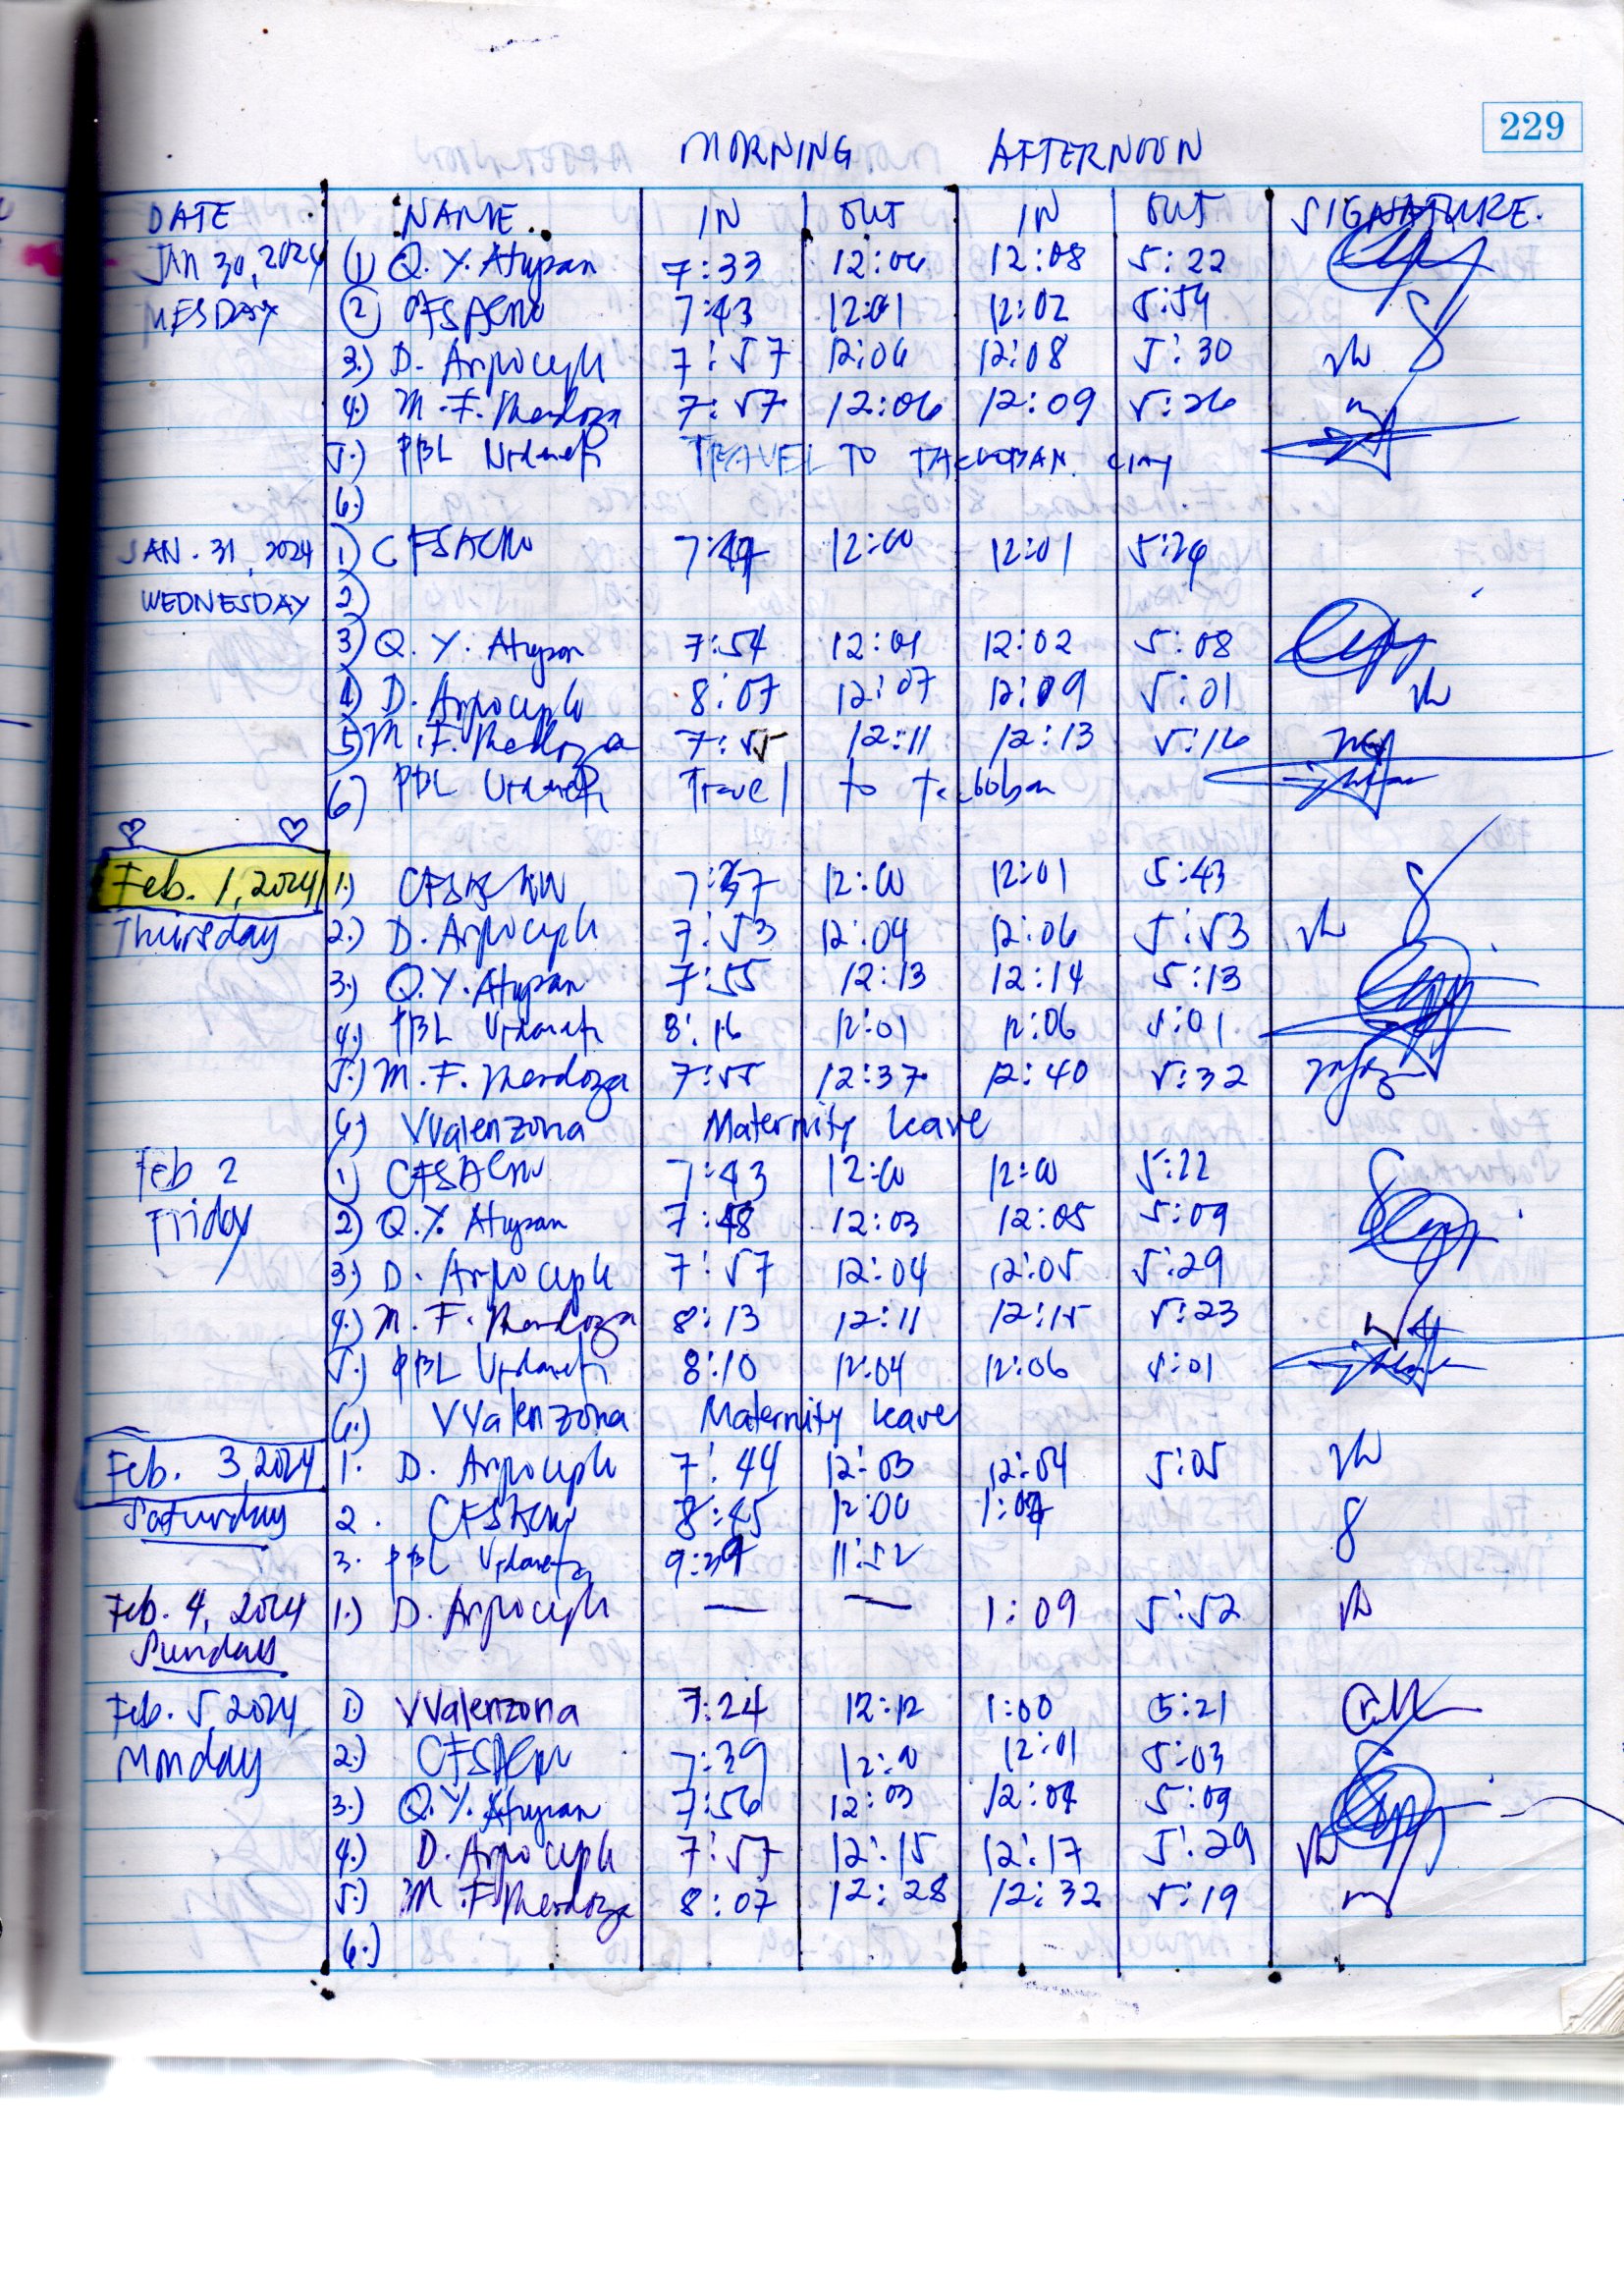 229
MORNING AFTERNOON
DATE NAME IN OUT IN OUT SIGNATURE.
JAN 30, 2024 1) Q. Y. Atupan 7:33 12:06 12:08 5:22
UESDAY 2 7:43 12:01 12:02 5:54
3.) D. 7:57 12:06 12:08 5:30
4) M. F. Mendoza 7:57 12:06 12:09 5:26
5.) PBL TRAVEL TO TACLOBAN City
6.)
JAN. 31, 2024 1) 12:00 12:01
WEDNESDAY 2)
3) Q. Y. Atupan 7:54 12:01 12:02 5:08
4) D. 8:07 12:07 12:09 5:01
5) M. F. Mendoza 7:55 12:11 12:13 5:16
6) PBL Travel to Tacloban
Feb. 1, 2024 1.) 12:00 12:01 5:43
Thursday 2.) D. 7:53 12:04 12:06 5:53
3.) Q. Y. Atupan 7:55 12:13 12:14 5:13
4.) PBL 8:16 12:01 12:06 5:01
5.) M. F. Mendoza 7:55 12:37 12:40 5:32
6) VValenzona Maternity leave
Feb 2 1) 7:43 12:00 12:00 5:22
Friday 2) Q. Y. Atupan 7:48 12:03 12:05 5:09
3.) D. 7:57 12:04 12:05 5:29
4.) M. F. Mendoza 8:13 12:11 12:15 5:23
5.) PBL 8:10 12:04 12:06 5:01
6.) VValenzona Maternity leave
Feb. 3, 2024 1. D. 7:44 12:03 12:04 5:05
Saturday 2. 8:45 12:00
3. PBL 11:52
Feb. 4, 2024 1.) D. — — 1:09 5:52
Sunday
Feb. 5, 2024 1) VValenzona 7:24 12:12 1:00 5:21
Monday 2.) 7:39 12:00 12:01 5:03
3.) Q. Y. Atupan 7:56 12:03 12:04 5:09
4.) D. 7:57 12:15 12:17 5:29
5.) M. F Mendoza 8:07 12:28 12:32 5:19
6.)